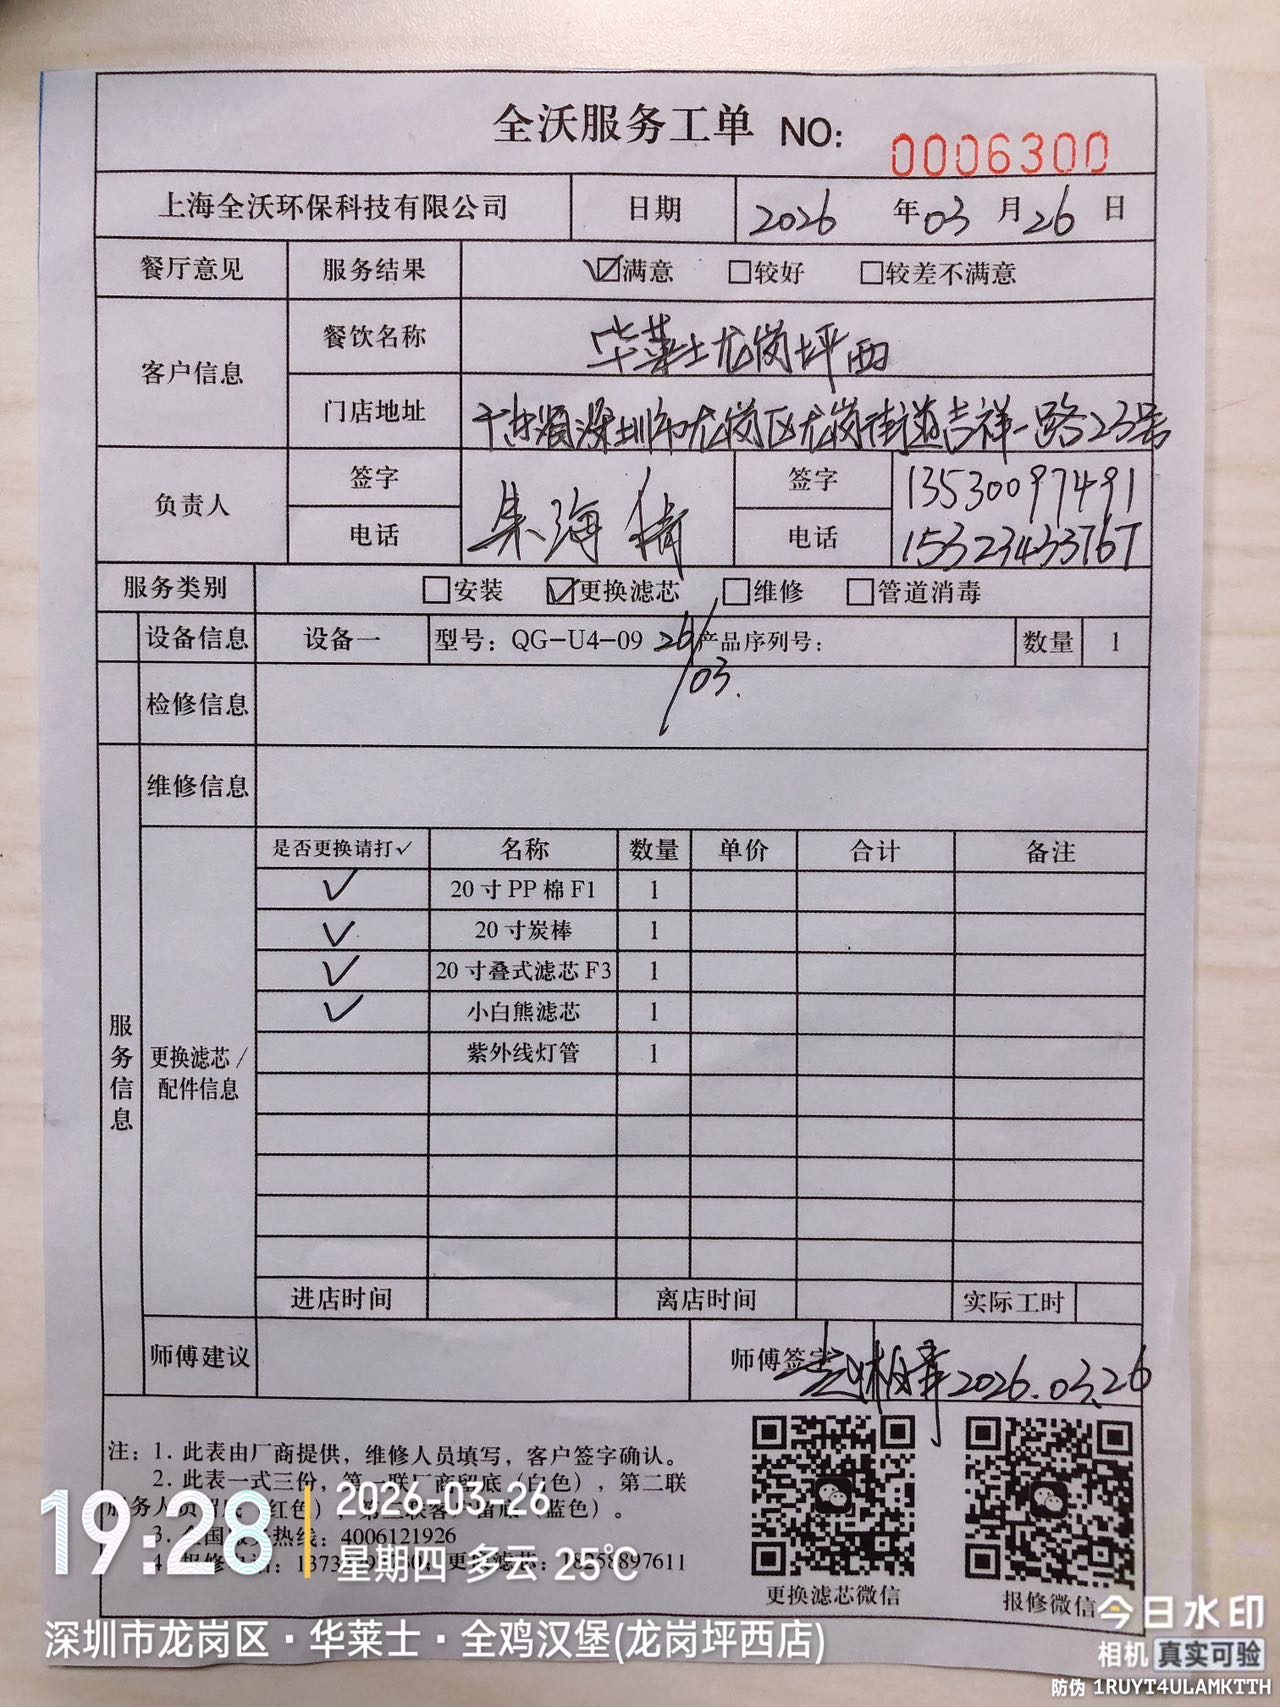 全沃服务工单 NO: 0006300
上海全沃环保科技有限公司 日期 2026 年 03 月 26 日
餐厅意见 服务结果 ☑满意 □较好 □较差不满意
客户信息 餐饮名称 华莱士龙岗坪西
门店地址 深圳市龙岗区龙岗街道吉祥一路23号
负责人 签字 朱海 签字 13530097491
电话 电话 15323433767
服务类别 □安装 ☑更换滤芯 □维修 □管道消毒
设备信息 设备一 型号: QG-U4-09 26/03. 产品序列号: 数量 1
检修信息
维修信息
服务信息
更换滤芯/配件信息
是否更换请打✓ 名称 数量 单价 合计 备注
✓ 20寸PP棉F1 1
✓ 20寸炭棒 1
✓ 20寸叠式滤芯F3 1
✓ 小白熊滤芯 1
紫外线灯管 1
进店时间 离店时间 实际工时
师傅建议 师傅签字 2026.03.26
注: 1. 此表由厂商提供，维修人员填写，客户签字确认。
2. 此表一式三份，第一联厂商留底（白色），第二联
服务人员留底（红色），第三联客户留底（蓝色）。
3. 全国服务热线: 4006121926
4. 报修电话: 更换滤芯:
更换滤芯微信 报修微信
19:28 2026-03-26
星期四 多云 25℃
深圳市龙岗区·华莱士·全鸡汉堡(龙岗坪西店)
今日水印
相机 真实可验
防伪 1RUYT4ULAMKTTH